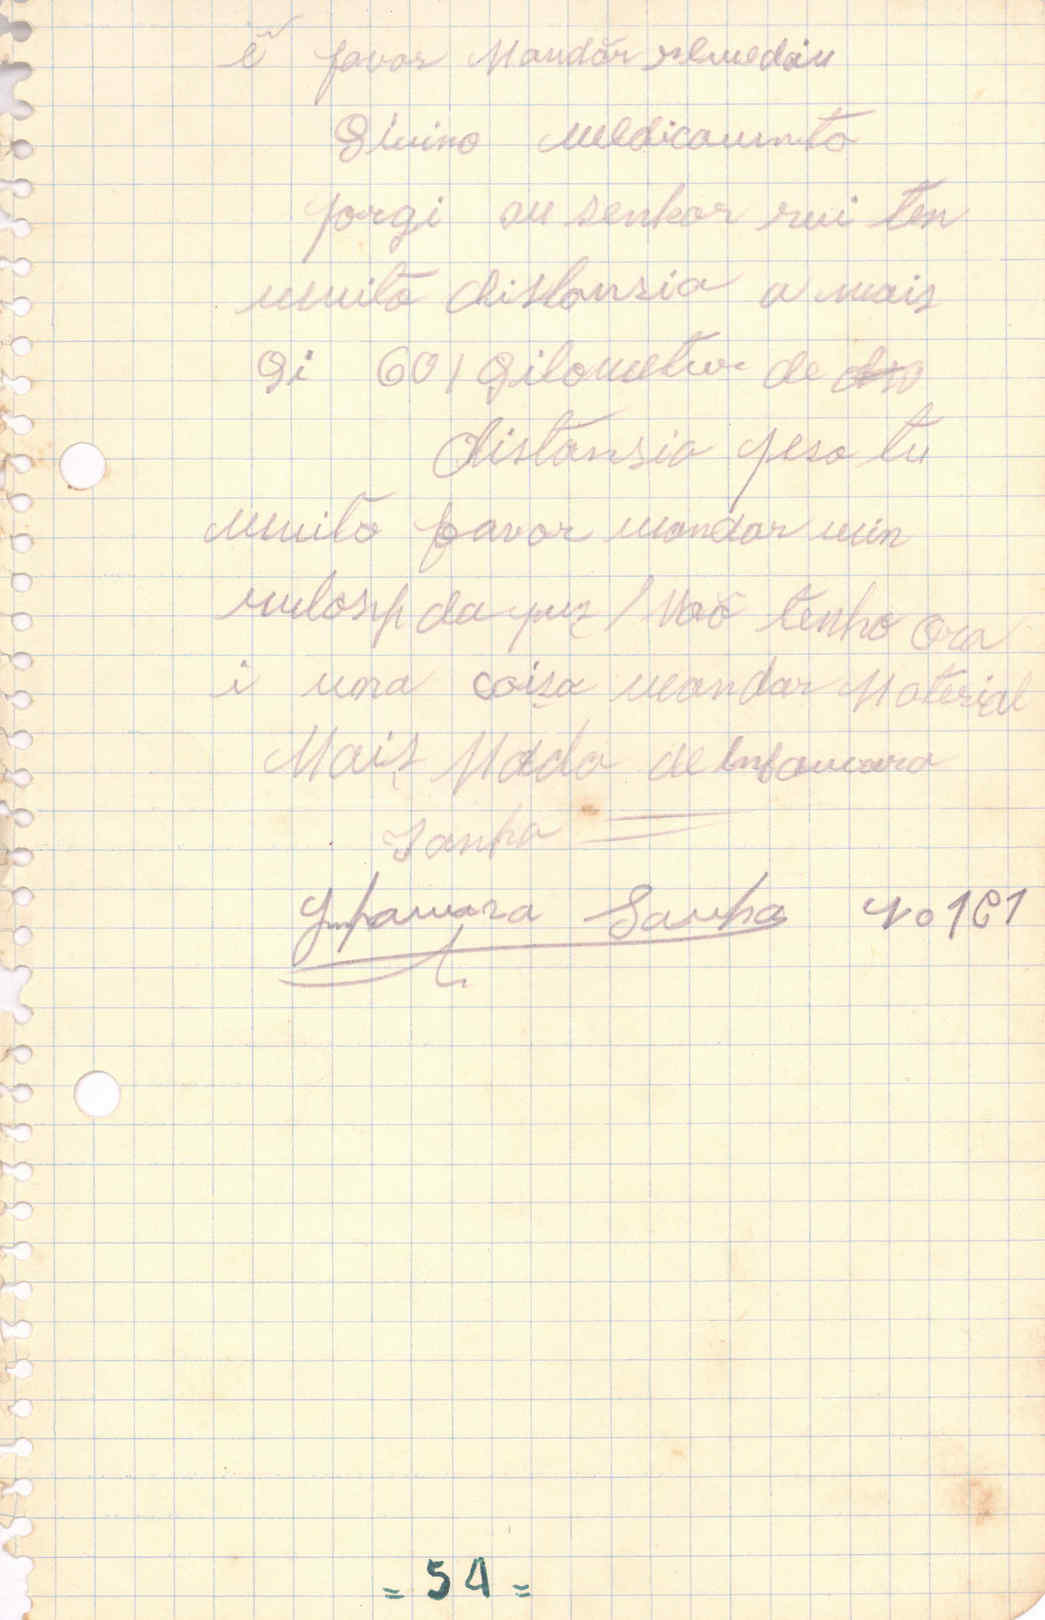 ẽ favor Mandar remedáu
Gluino Medicamento
porgi ou senhor rui ten
muito distansia a mais
gi 60 / gilometro de
distansia peso tu
muito favor mandar min
da puz / Não tenho ora
i una coisa mandar Material
Mais Nada de Infamara
Sanha
Ynfamara Sanha No 161
= 54 =